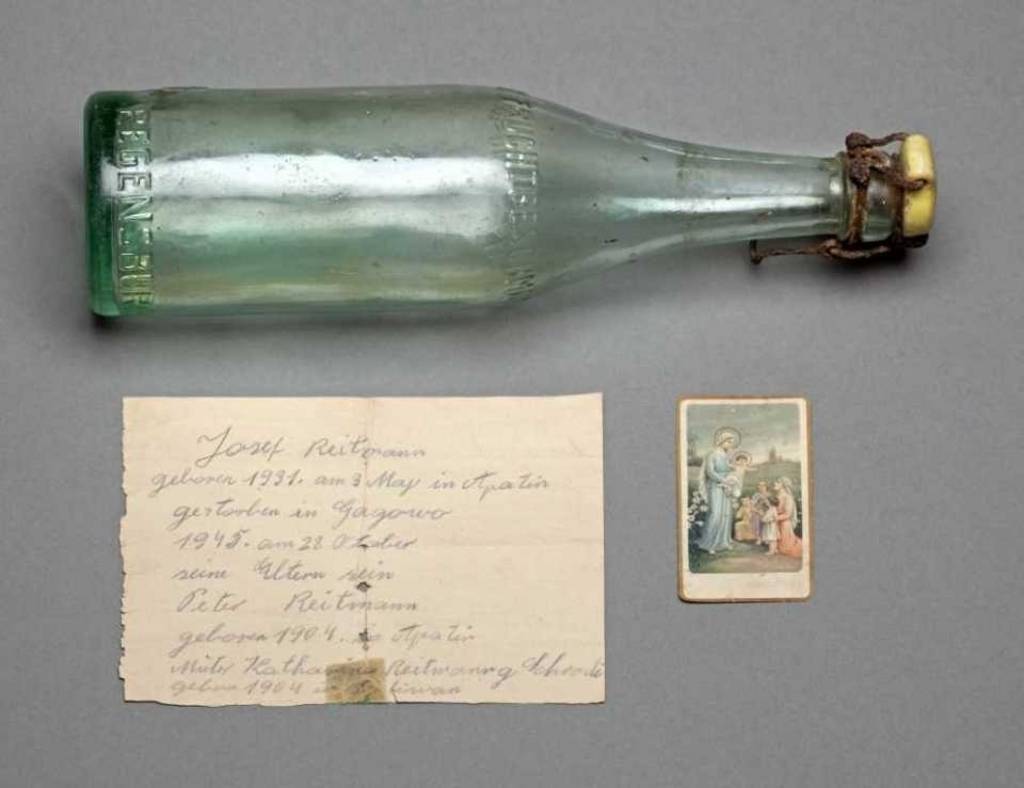 REGENSBUR
Josef Reitmann
geboren 1931. am 3 May in Apatin
gestorben in Gagowo
1945. am 28 Oktober
seine Eltern sein
Peter Reitmann
geboren 1904. in Apatin
Muter Katharina Reitmann g Schrode
geboren 1904 in